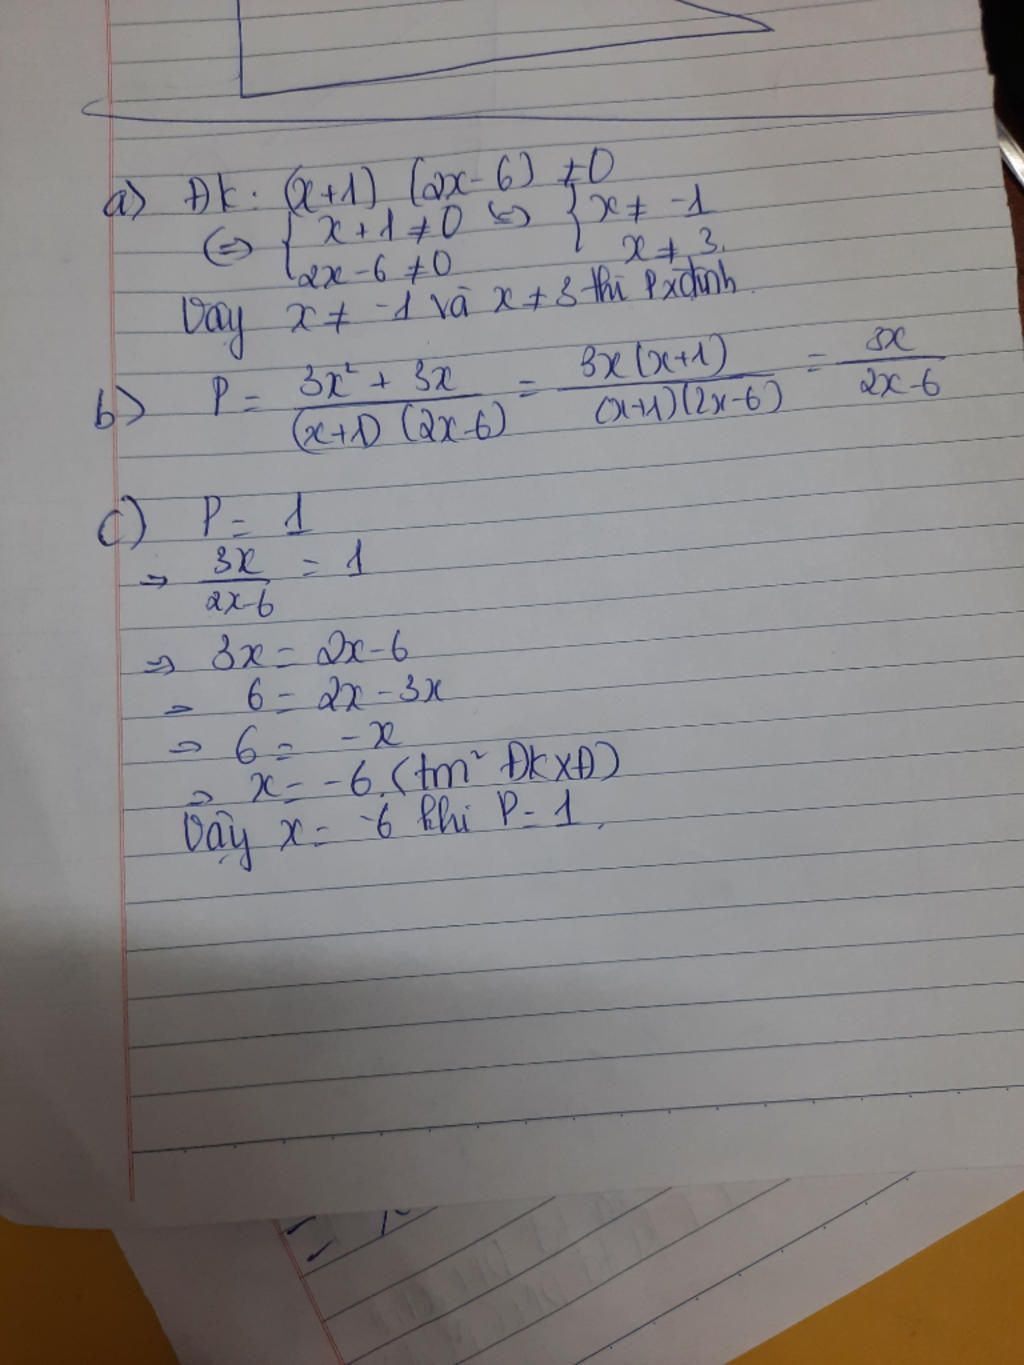 a) ĐK: (x+1) (2x-6) ≠0
⇔ { x+1≠0 ⇔ { x≠ -1
2x-6 ≠0 x≠ 3.
Vậy x≠ -1 và x≠3 thì P xđịnh.
b) P = (3x² + 3x)/((x+1) (2x-6)) = (3x(x+1))/((x+1)(2x-6)) = 3x/(2x-6)
c) P = 1
⇒ 3x/(2x-6) = 1
⇒ 3x = 2x-6
⇒ 6 = 2x - 3x
⇒ 6 = -x
⇒ x = -6. (tm² ĐKXĐ)
Vậy x = -6 khi P = 1.